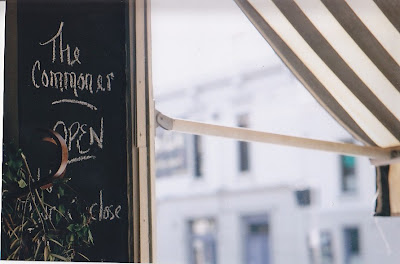 The
Commoner
OPEN
close